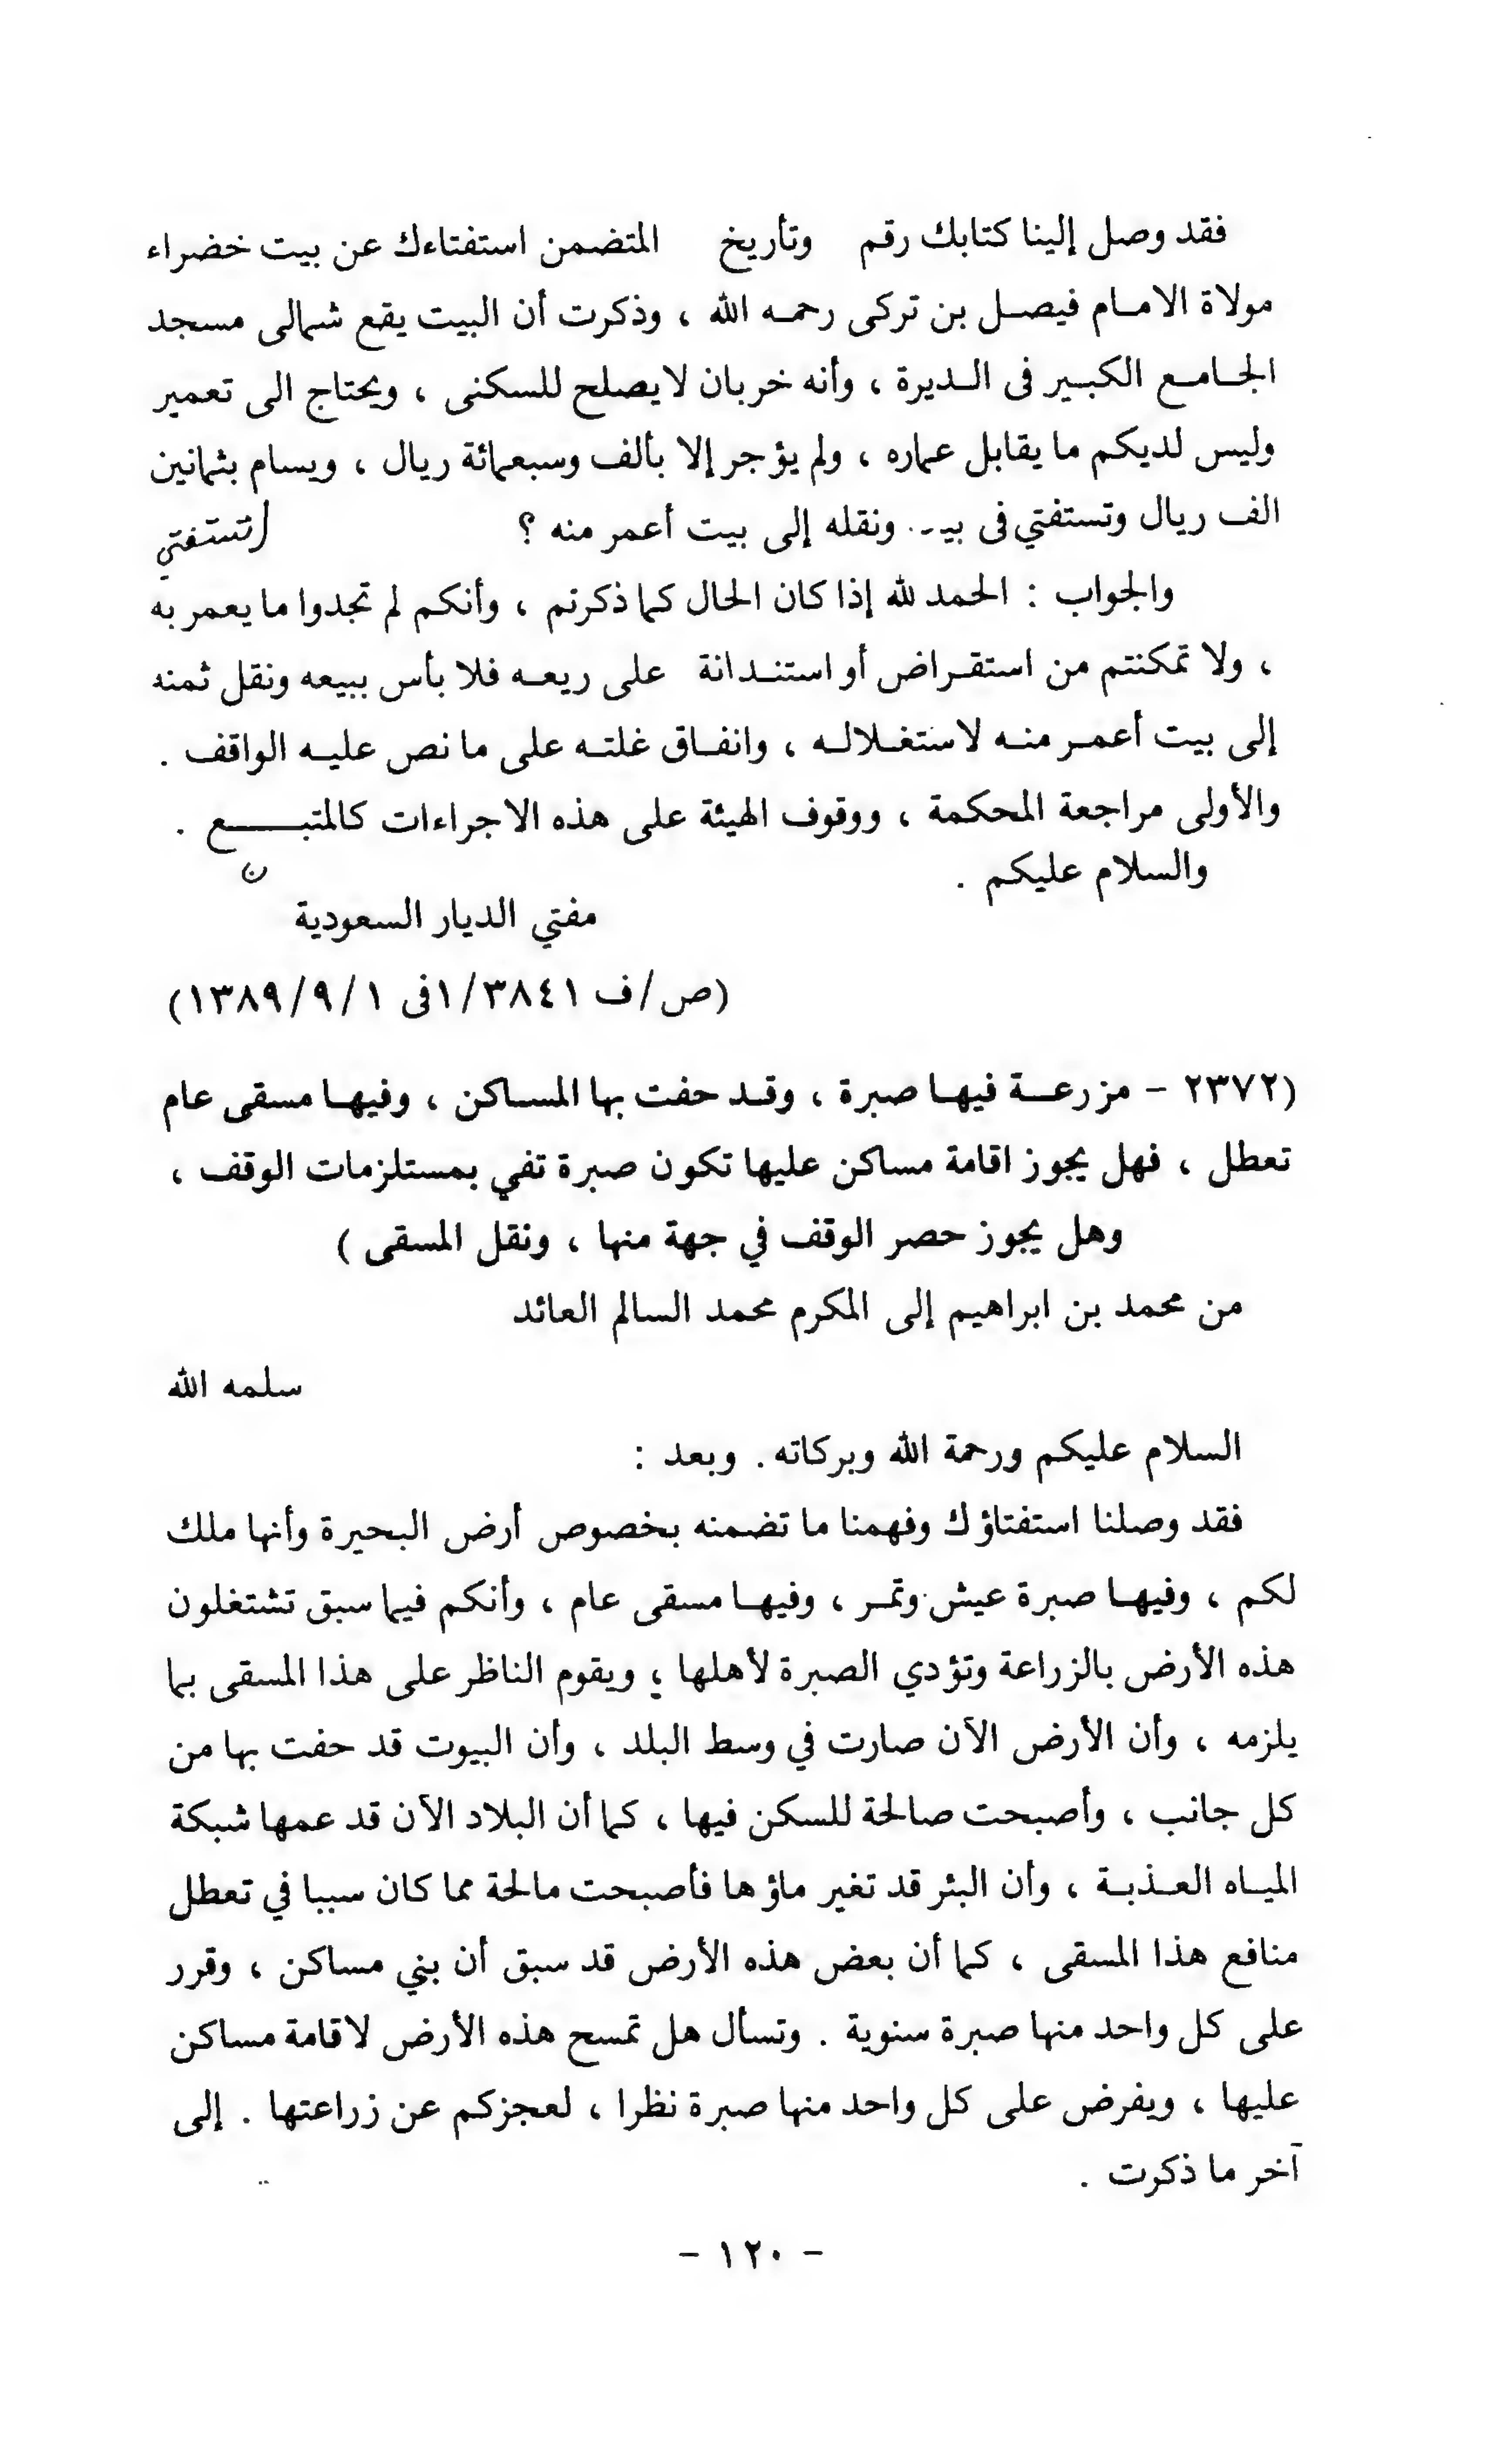 فقد وصل إلينا كتابك رقم وتأريخ المتضمن استفتاءك عن بيت خضراء
مولاة الامام فيصل بن تركى رحمه الله ، وذكرت أن البيت يقع شمالى مسجد
الجامع الكبير فى الديرة ، وأنه خربان لا يصلح للسكنى ، ويحتاج الى تعمير
وليس لديكم ما يقابل عماره ، ولم يؤجر إلا بألف وسبعمائة ريال ، ويسام بثمانين
الف ريال وتستفتي فى ونقله إلى بيت أعمر منه ؟
والجواب : الحمد لله إذا كان الحال كما ذكرتم ، وأنكم لم تجدوا ما يعمر به
، ولا تمكنتم من استقراض أو استندانة على ريعه فلا بأس ببيعه ونقل ثمنه
إلى بيت أعمر منه لاستغلاله ، وانفاق غلته على ما نص عليه الواقف .
والأولى مراجعة المحكمة ، ووقوف الهيئة على هذه الاجراءات كالمتبع .
والسلام عليكم .
مفتي الديار السعودية
(ص/ف ١/٣٨٤١فى ١٣٨٩/٩/١)
(٢٣٧٢ - مزرعة فيها صبرة ، وقد حفت بها المساكن ، وفيها مسقى عام
تعطل ، فهل يجوز اقامة مساكن عليها تكون صبرة تفي بمستلزمات الوقف ،
وهل يجوز حصر الوقف في جهة منها ، ونقل المسقى )
من محمد بن ابراهيم إلى المكرم محمد السالم العائد
سلمه الله
السلام عليكم ورحمة الله وبركاته . وبعد :
فقد وصلنا استفتاؤك وفهمنا ما تضمنه بخصوص أرض البحيرة وأنها ملك
لكم ، وفيها صبرة عيش وتمر ، وفيها مسقى عام ، وأنكم فيما سبق تشتغلون
هذه الأرض بالزراعة وتؤدي الصبرة لأهلها ؛ ويقوم الناظر على هذا المسقى بما
يلزمه ، وأن الأرض الآن صارت في وسط البلد ، وأن البيوت قد حفت بها من
كل جانب ، وأصبحت صالحة للسكن فيها ، كما أن البلاد الآن قد عمها شبكة
المياه العذبة ، وأن البئر قد تغير ماؤها فأصبحت مالحة مما كان سببا في تعطل
منافع هذا المسقى ، كما أن بعض هذه الأرض قد سبق أن بني مساكن ، وقرر
على كل واحد منها صبرة سنوية . وتسأل هل تمسح هذه الأرض لاقامة مساكن
عليها ، ويفرض على كل واحد منها صبرة نظرا ، لعجزكم عن زراعتها . إلى
آخر ما ذكرت .
- ١٢٠ -